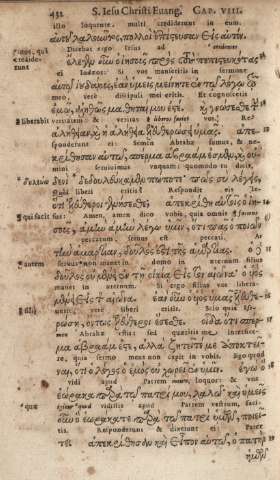 432 S. Iesu Christi Euang. CAP. VIII.
illo loquente multi crediderunt in eum.
αὐτοῦ λαλοῦντος, πολλοὶ ἐπίστευσαν εἰς αὐτόν.
Dicebat ergo Iesus ad
ἔλεγεν οὖν ὁ ἰησοῦς πρὸς τοὺς πεπιστευκότας
ei Iudæos: Si vos manseritis in sermone
αὐτῷ ἰουδαίους, ἐὰν ὑμεῖς μείνητε ἐν τῷ λόγῳ
meo, vere discipuli mei estis. Et cognoscetis
ἐμῷ, ἀληθῶς μαθηταί μου ἐστέ. καὶ γνώσεσθε
liberabit veritatem & veritas liberos faciet vos.
ἀλήθειαν, καὶ ἡ ἀλήθεια ἐλευθερώσει ὑμᾶς.
sponderunt ei: Semen Abrahæ sumus, &
κρίθησαν αὐτῷ, σπέρμα ἀβραάμ ἐσμεν, καὶ
nemini seruiuimus vnquam: quomodo tu dicis,
δενὶ δεδουλεύκαμεν πώποτε· πῶς σὺ λέγεις,
quod liberi eritis? Respondit eis
ὅτι ἐλεύθεροι γενήσεσθε; ἀπεκρίθη αὐτοῖς ὁ
qui facit sus: Amen, amen dico vobis, quia omnis
σοῦς, ἀμὴν ἀμὴν λέγω ὑμῖν, ὅτι πᾶς ὁ ποιῶν
peccatum seruus est peccati.
τὴν ἁμαρτίαν, δοῦλός ἐστι τῆς ἁμαρτίας. ὁ
autem seruus non manet in domo in æternum filius
δοῦλος οὐ μένει ἐν τῇ οἰκίᾳ εἰς τὸν αἰῶνα· ὁ υἱὸς
manet in æternum. Si ergo filius vos libera-
μένει εἰς τὸν αἰῶνα. ἐὰν οὖν ὁ υἱὸς ὑμᾶς
vere liberi eritis. Scio quia
ρώσῃ, ὄντως ἐλεύθεροι ἔσεσθε. οἶδα ὅτι σπέρ-
men Abrahæ estis: sed quæritis me interfice-
μα ἀβραάμ ἐστε, ἀλλὰ ζητεῖτέ με ἀποκτεῖ-
re, quia sermo meus non capit in vobis. Ego quod
ναι, ὅτι ὁ λόγος ὁ ἐμὸς οὐ χωρεῖ ἐν ὑμῖν. ἐγὼ ὃ
vidi apud Patrem meum, loquor: & vos
ἑώρακα παρὰ τῷ πατρί μου, λαλῶ· καὶ ὑμεῖς
quæ quod vidistis apud Patrem vestrum, faci-
οὖν ὃ ἑωράκατε παρὰ τῷ πατρὶ ὑμῶν, ποιεῖ-
tis. Responderunt & dixerunt ei Pater
τε. ἀπεκρίθησαν καὶ εἶπον αὐτῷ, ὁ πατὴρ
ἡμῶν